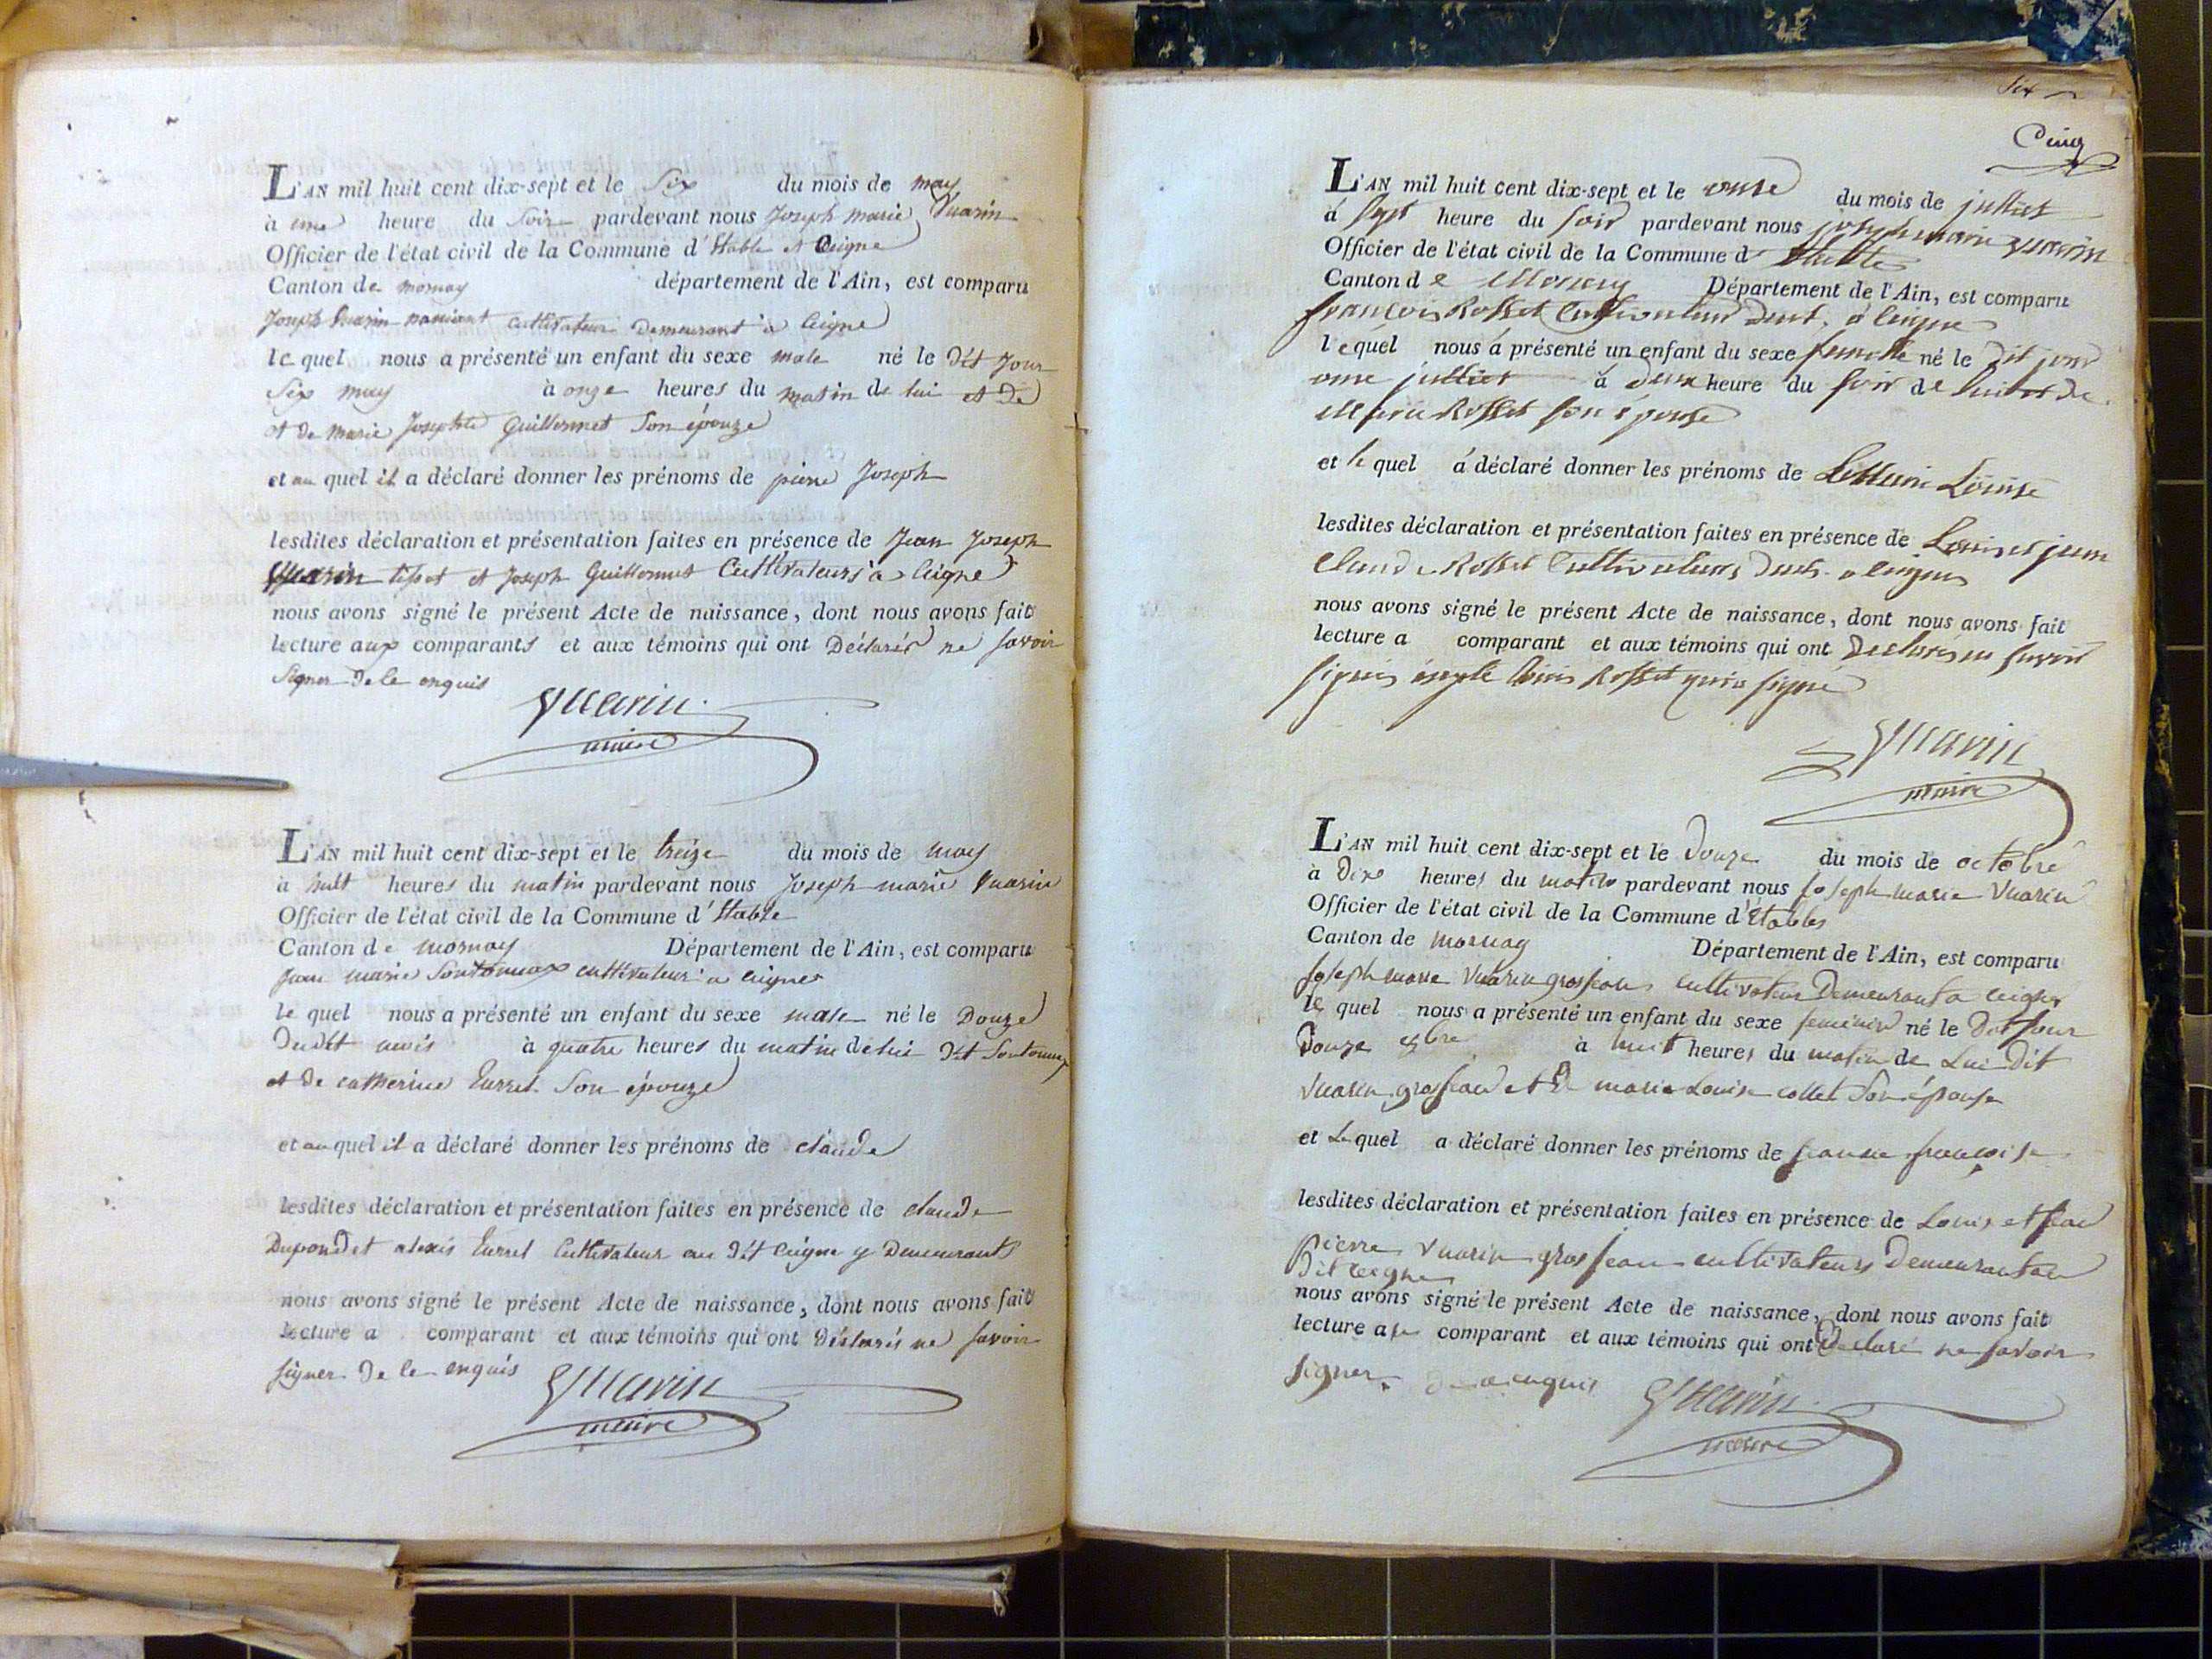 L'AN mil huit cent dix-sept et le Six du mois de may
à une heure du Soir pardevant nous Joseph marie Vuarin
Officier de l'état civil de la Commune d'Etable et Ceigne
Canton de mornay département de l'Ain, est comparu
Joseph Vuarin cultivateur Demeurant à Ceigne
le quel nous a présenté un enfant du sexe male né le Dit Jour
Six may à onze heures du matin de lui et De
et de marie Josephte Guillermet Son épouze
et au quel il a déclaré donner les prénoms de pierre Joseph
lesdites déclaration et présentation faites en présence de Jean Joseph
Vuarin et Joseph Guillermet Cultivateurs à Ceigne
nous avons signé le présent Acte de naissance, dont nous avons fait
lecture aux comparants et aux témoins qui ont Déclarés ne savoir
Signer De le enquis
Vuarin
maire
L'AN mil huit cent dix-sept et le treize du mois de may
à huit heures du matin pardevant nous Joseph marie Vuarin
Officier de l'état civil de la Commune d'Etable
Canton de mornay Département de l'Ain, est comparu
Jean marie Sontonnax cultivateur a Ceigne
le quel nous a présenté un enfant du sexe male né le Douze
Dudit mois à quatre heures du matin de lui Dit Sontonnax
et de catherine Turrel Son épouze
et au quel il a déclaré donner les prénoms de claude
lesdites déclaration et présentation faites en présence de claude
Dupond et alexis Turrel Cultivateur au Dit Ceigne y Demeurants
nous avons signé le présent Acte de naissance, dont nous avons fait
lecture a comparant et aux témoins qui ont Déclarés ne savoir
signer De le enquis
Vuarin
maire
Six
Cinq
L'AN mil huit cent dix-sept et le onse du mois de julliet
à sept heure du soir pardevant nous joseph marie vuarin
Officier de l'état civil de la Commune d Etable
Canton d e Mornay Département de l'Ain, est comparu
françois Rosset Cultivateur Demt. à Ceigne
lequel nous a présenté un enfant du sexe femelle né le Dit jour
onse julliet à deux heure du soir de lui et de
Marie Rosset son épouse
et le quel a déclaré donner les prénoms de Louise
lesdites déclaration et présentation faites en présence de Louis et jean
Claude Rosset Cultivateurs Demts. a Ceigne
nous avons signé le présent Acte de naissance, dont nous avons fait
lecture a comparant et aux témoins qui ont Declarés ne savoir
signés éxepté Louis Rosset qui a signé
Vuarin
maire
L'AN mil huit cent dix-sept et le Douze du mois de octobre
à Dix heures du matin pardevant nous Joseph marie Vuarin
Officier de l'état civil de la Commune d'Etables
Canton de mornay Département de l'Ain, est comparu
Joseph marie Vuarin grosjean cultivateur Demeurant a Ceigne
le quel nous a présenté un enfant du sexe feminin né le Dit Jour
Douze 8bre à huit heures du matin de Lui Dit
Vuarin grosjean et De marie Louise collet Son épouse
et Le quel a déclaré donner les prénoms de jeanne françoise
lesdites déclaration et présentation faites en présence de Louis et Jean
pierre Vuarin grosjean cultivateurs Demeurant au
Dit Ceigne
nous avons signé le présent Acte de naissance, dont nous avons fait
lecture a comparant et aux témoins qui ont Declaré ne savoir
signer enquis
Vuarin
maire